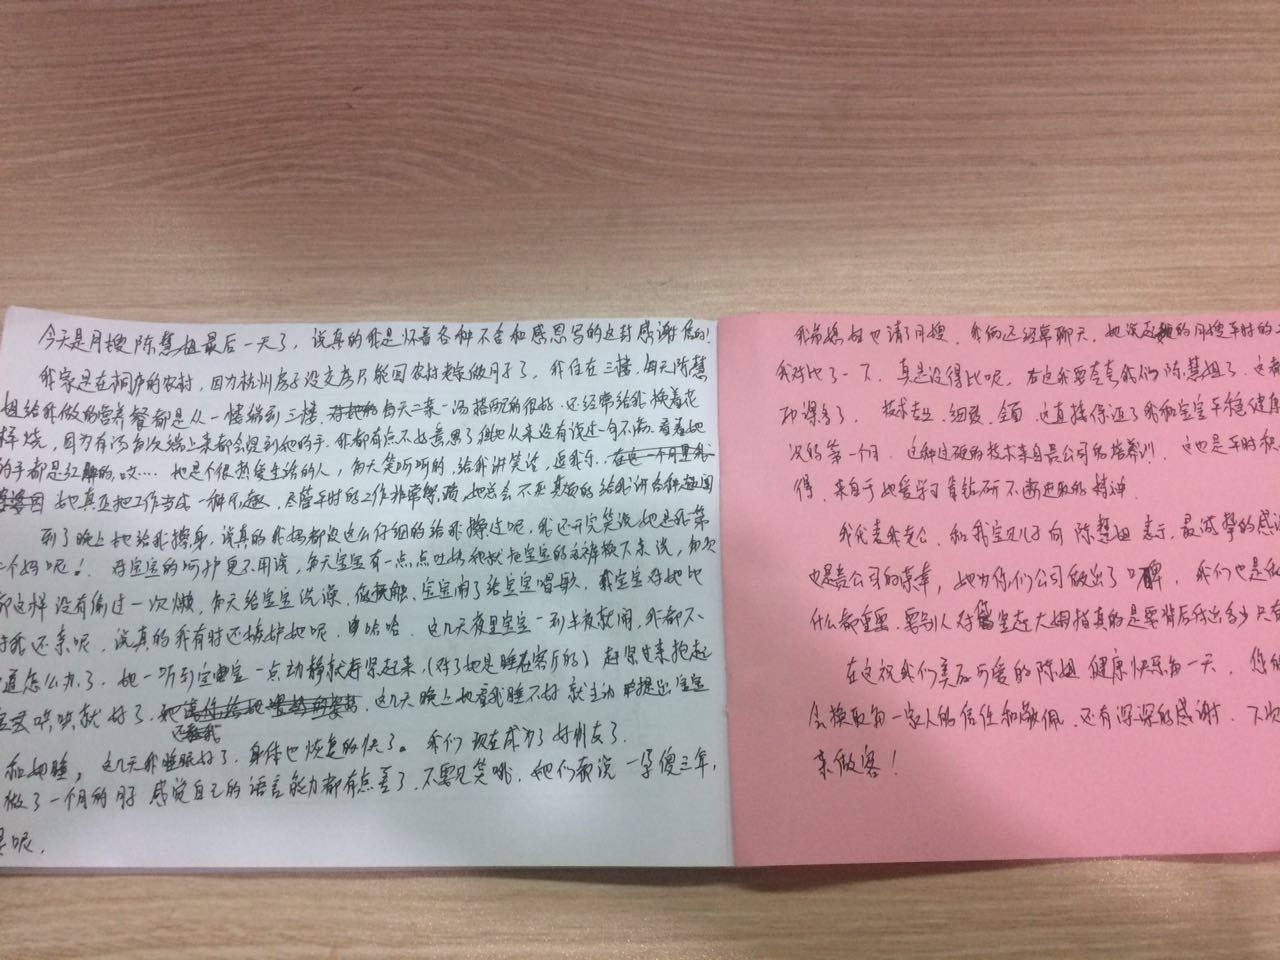 今天是月搜陈慧姐最后一天了，说真的我是怀着各种不舍和感恩写的这封感谢信的！
我家是在桐庐的农村，因为杭州房子没交房只能回农村老家做月子了，我住在三楼，每天陈慧
姐给我做的营养餐都是从一楼端到三楼，每天二菜一汤搭配的很好，还经常给我换着花
样烧，因为有汤每次端上来都会烫到她的手，我都有点不好意思了但她从来没有说过一句不满，看着她
的手都是红的，哎…… 她是个很热爱生活的人，每天笑呵呵的，给我讲笑话，逗我乐，
她真正把工作当成一种乐趣，尽管平时的工作非常繁琐，她总会不厌其烦的给我讲各种
到了晚上她给我擦身，说真的我妈都没这么仔细的给我擦过呢，我还开完笑说她是我第
二个妈呢！ 对宝宝的呵护更不用说，每天宝宝有一点点吐奶她就把宝宝的衣裤换下来洗，每次
都这样没有偷过一次懒，每天给宝宝洗澡，做抚触，宝宝闹了给宝宝唱歌，我宝宝对她比
对我还亲呢，说真的我有时还嫉妒她呢，哈哈，这几天夜里宝宝一到半夜就闹，我都不
道怎么办了，她一听到宝宝一点动静就赶紧起来，（对了她是睡在客厅的）赶紧进来抱起
宝宝哄哄就好了，这几天晚上她看我睡不好就主动提出宝宝
和她睡，这几天我睡眠好了，身体也恢复的快了。我们现在成为了好朋友了。
做了一个月的月子感觉自己的语言能力都有点差了，不要见笑哦，她们都说一孕傻三年，
是呢，
我弟媳也请了月搜，我俩还经常聊天，她说起她的月搜平时的
我对比了一下，真是没得比呢，在这我要夸夸我们陈慧姐了，这都
功课多了，技术专业，细致，全面，这直接保证了我和宝宝平稳健康
这种过硬的技术来自贵公司的培训，这也是平时积
得，来自于她爱学习肯钻研不断进取的精神
我代表我老公，和我宝贝儿子向陈慧姐表示，最诚挚的感谢
也是贵公司的荣幸，她为你们公司做出了口碑，我们也是做
什么都重要，要别人对你竖起大姆指真的是要背后付出多少只有
在这祝我们美丽可爱的陈姐健康快乐每一天，您的
会换取每一家人的信任和敬佩，还有深深的感谢，
来做客！